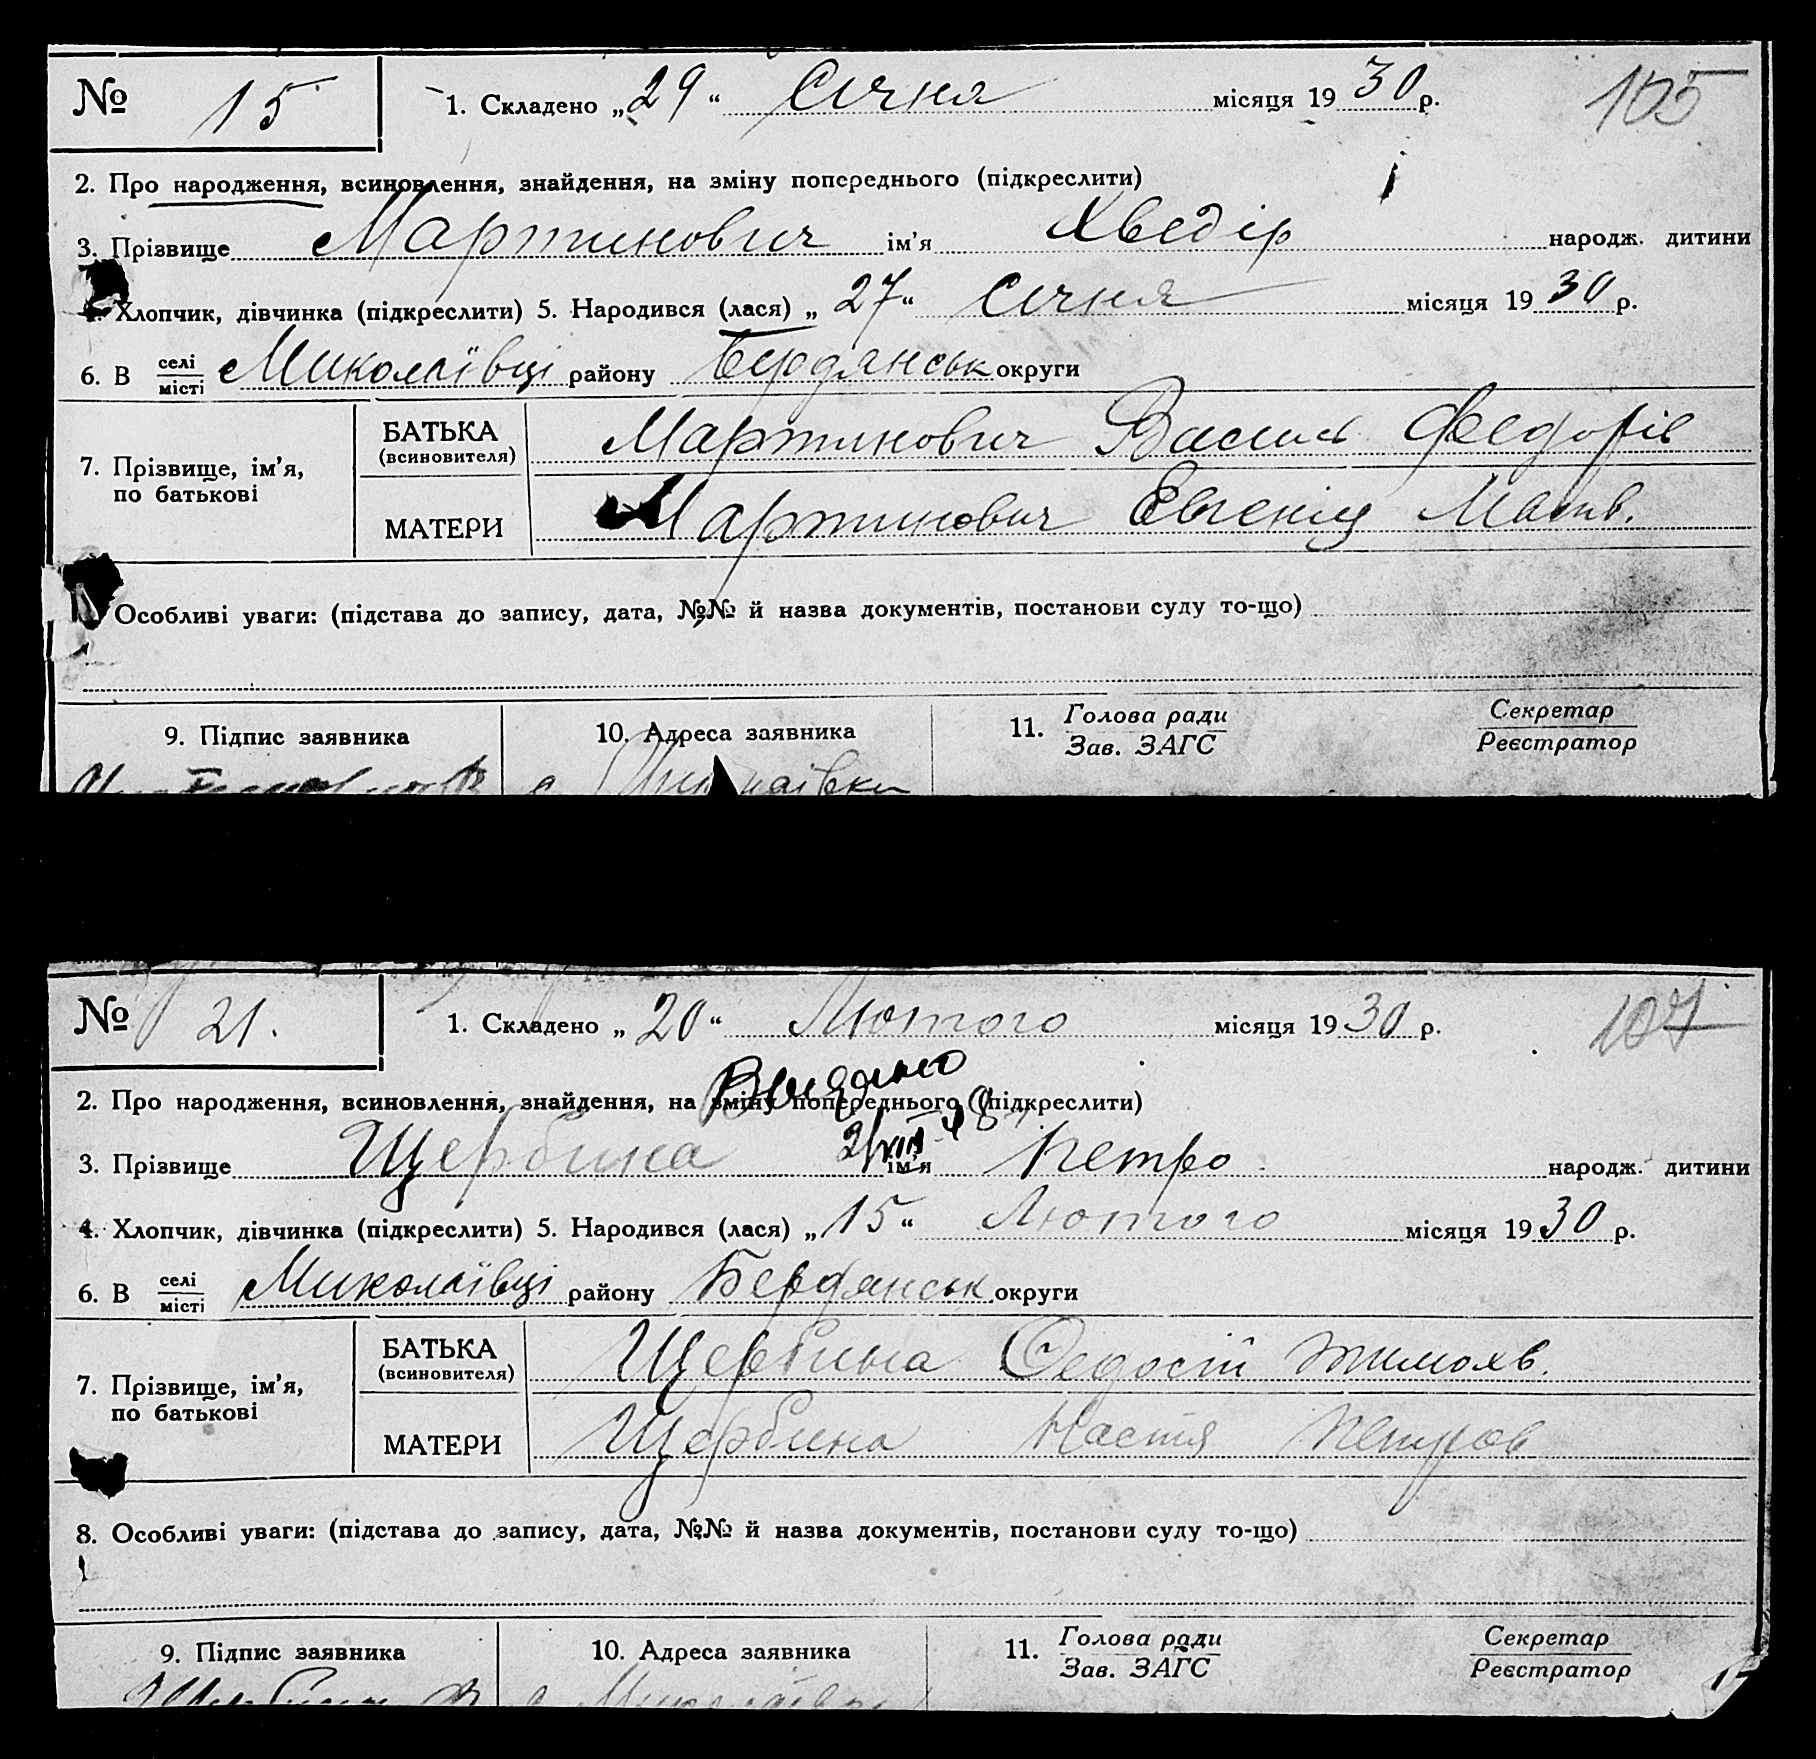 № 15 1. Складено „29“ Січня місяця 1930 р. 105
2. Про народження, всиновлення, знайдення, на зміну попереднього (підкреслити)
3. Прізвище Мартинович ім’я Хведір народж. дитини
4. Хлопчик, дівчинка (підкреслити) 5. Народився (лася) „27“ Січня місяця 1930 р.
6. В селі місті Миколаївці району Бердянськ округи
7. Прізвище, ім’я, по батькові
БАТЬКА (всиновителя) Мартинович Василь Федорів
МАТЕРИ Мартинович Евгенія
Особливі уваги: (підстава до запису, дата, №№ й назва документів, постанови суду то-що)
9. Підпис заявника 10. Адреса заявника 11. Голова ради Зав. ЗАГС Секретар Реєстратор
с.
№ 21. 1. Складено „20“ Лютого місяця 1930 р. 107
Видано
2. Про народження, всиновлення, знайдення, на зміну попереднього (підкреслити)
3. Прізвище Щербина ім’я Петро народж. дитини
4. Хлопчик, дівчинка (підкреслити) 5. Народився (лася) „15“ Лютого місяця 1930 р.
6. В селі місті Миколаївці району Бердянськ округи
7. Прізвище, ім’я, по батькові
БАТЬКА (всиновителя) Щербина Федосій Тимохв.
МАТЕРИ Щербина Настя Петров
8. Особливі уваги: (підстава до запису, дата, №№ й назва документів, постанови суду то-що)
9. Підпис заявника 10. Адреса заявника 11. Голова ради Зав. ЗАГС Секретар Реєстратор